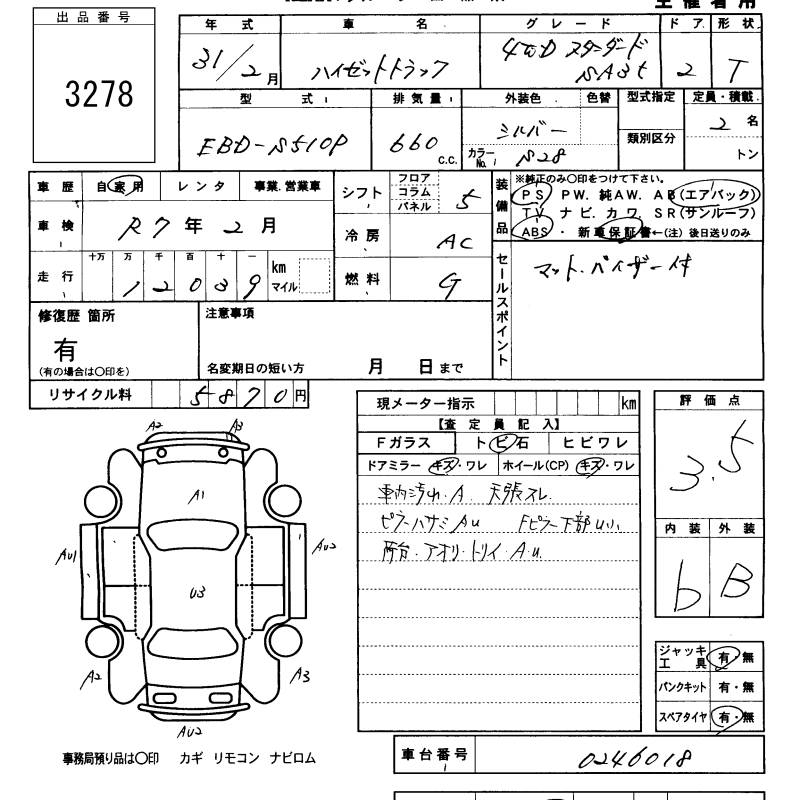 出品番号
3278
年式 車名 グレード ドア 形状
31/2月 ハイゼットトラック 4WD スタンダード SA3t 2 T
型式 排気量 外装色 色替 型式指定 定員・積載
EBD-S510P 660 C.C. シルバー 類別区分 2名
カラーNo. S28 トン
車歴 自家用 レンタ 事業.営業車
車検 R7年2月
走行 十万 万 千 百 十 一
12039 km マイル
シフト フロア コラム パネル 5
冷房 AC
燃料 G
装備品 ※純正のみ○印をつけて下さい。
PS PW. 純AW. AB(エアバック)
TV ナビ. カワ. SR(サンルーフ)
ABS ・ 新車保証書←(注) 後日送りのみ
セールスポイント
マット.バイザー付
修復歴 箇所
有
(有の場合は○印を)
注意事項
名変期日の短い方 月 日まで
リサイクル料 5870円
現メーター指示 km
【査定員記入】
Fガラス トビ石 ヒビワレ
ドアミラー キズ・ワレ ホイール(CP) キズ・ワレ
車内汚れ.A. 天張スレ.
ピラーハサミAu Fピラー下部
アオリ.トリイ.A.u.
評価点
3.5
内装 外装
b B
ジャッキ工具 有・無
パンクキット 有・無
スペアタイヤ 有・無
A2 A3
A1
AU1 AU2
U3
A2 A3
AU2
事務局預り品は○印 カギ リモコン ナビロム
車台番号 0246018